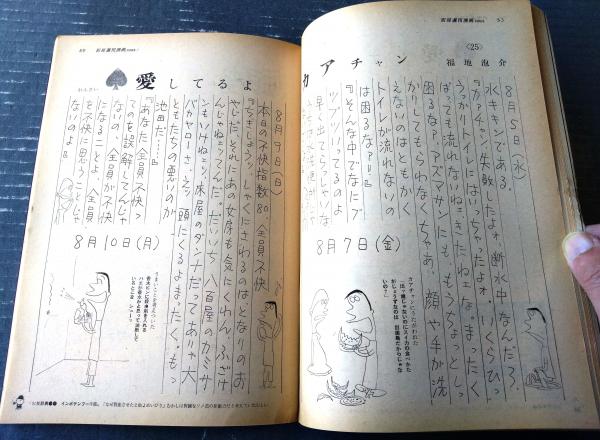 53
別冊週刊漫画TIMES
〈25〉
カアチャン
福地泡介
8月5日(水)
水キキンである。
『カァチャン、失敗したよォ、断水中なんだろ。
うっかりトイレにはいっちゃったよォ
ばっても流れないねェ、きたねェなァ、まったく
困るなァ、アズマサンにも、もうちょっとしっ
かりしてもらわなくちゃあ、顔や手が洗
えないのはともかく
トイレが流れない
は困るなァ!!』
『そんな中でなにブ
ツブツいってるのよ
早く出てらっしゃいな
8月7日(金)
カアチャンにうたがわれた
「出ッ歯じゃないのにスイカの食べかた
がじょうずなのは
いの?」
89
別冊週刊漫画TIMES
愛してるよ
れんさい
8月9日(日)
本日の不快指数80、全員不快
『ちきしょうッ、しゃくにさわるのはとなりのお
やじだ、それにあの女房も気にくわん、ふざけ
んじゃねェってんだ、だいいち、八百屋のカミサ
ンもいけねェッ、床屋のダンナだってありゃ大
バカヤローさ、えッ、頭にくるよまったく、もっ
ともたちの悪いのが
池田だ……』
『あなた、全員不快っ
てのを誤解してんじゃ
ないの、全員が不快
になることよ、全員
を不快に思うことじゃ
ないのよ』
8月10日(月)
うまいことを考えついた
香水ビンに殺虫剤を入れる
ハエが香水かと思って油断して
いるところを シュー。
インポテンツ一号